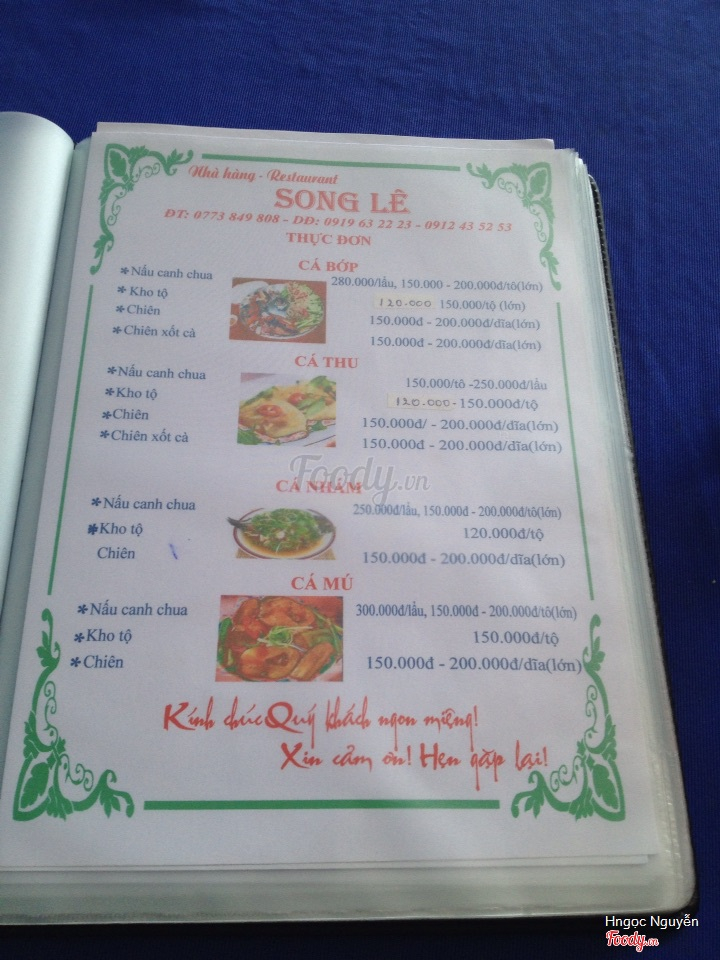 Nhà hàng - Restaurant
SONG LÊ
ĐT: 0773 849 808 - DĐ: 0919 63 22 23 - 0912 43 52 53
THỰC ĐƠN
CÁ BỚP
*Nấu canh chua 280.000/lẩu, 150.000 - 200.000đ/tô(lớn)
*Kho tộ 120.000 150.000/tộ (lớn)
*Chiên 150.000đ - 200.000đ/dĩa(lớn)
*Chiên xốt cà 150.000đ - 200.000đ/dĩa(lớn)
CÁ THU
*Nấu canh chua 150.000/tô -250.000đ/lẩu
*Kho tộ 120.000-150.000đ/tộ
*Chiên 150.000đ/ - 200.000đ/dĩa(lớn)
*Chiên xốt cà 150.000đ - 200.000đ/dĩa(lớn)
Foody.vn
CÁ NHÁM
*Nấu canh chua 250.000đ/lẩu, 150.000đ - 200.000đ/tô(lớn)
*Kho tộ 120.000đ/tộ
Chiên 150.000đ - 200.000đ/dĩa(lớn)
CÁ MÚ
*Nấu canh chua 300.000đ/lẩu, 150.000đ - 200.000đ/tô(lớn)
*Kho tộ 150.000đ/tộ
*Chiên 150.000đ - 200.000đ/dĩa(lớn)
Kính chúc Quý khách ngon miệng!
Xin cảm ơn! Hẹn gặp lại!
Hngọc Nguyễn
Foody.vn